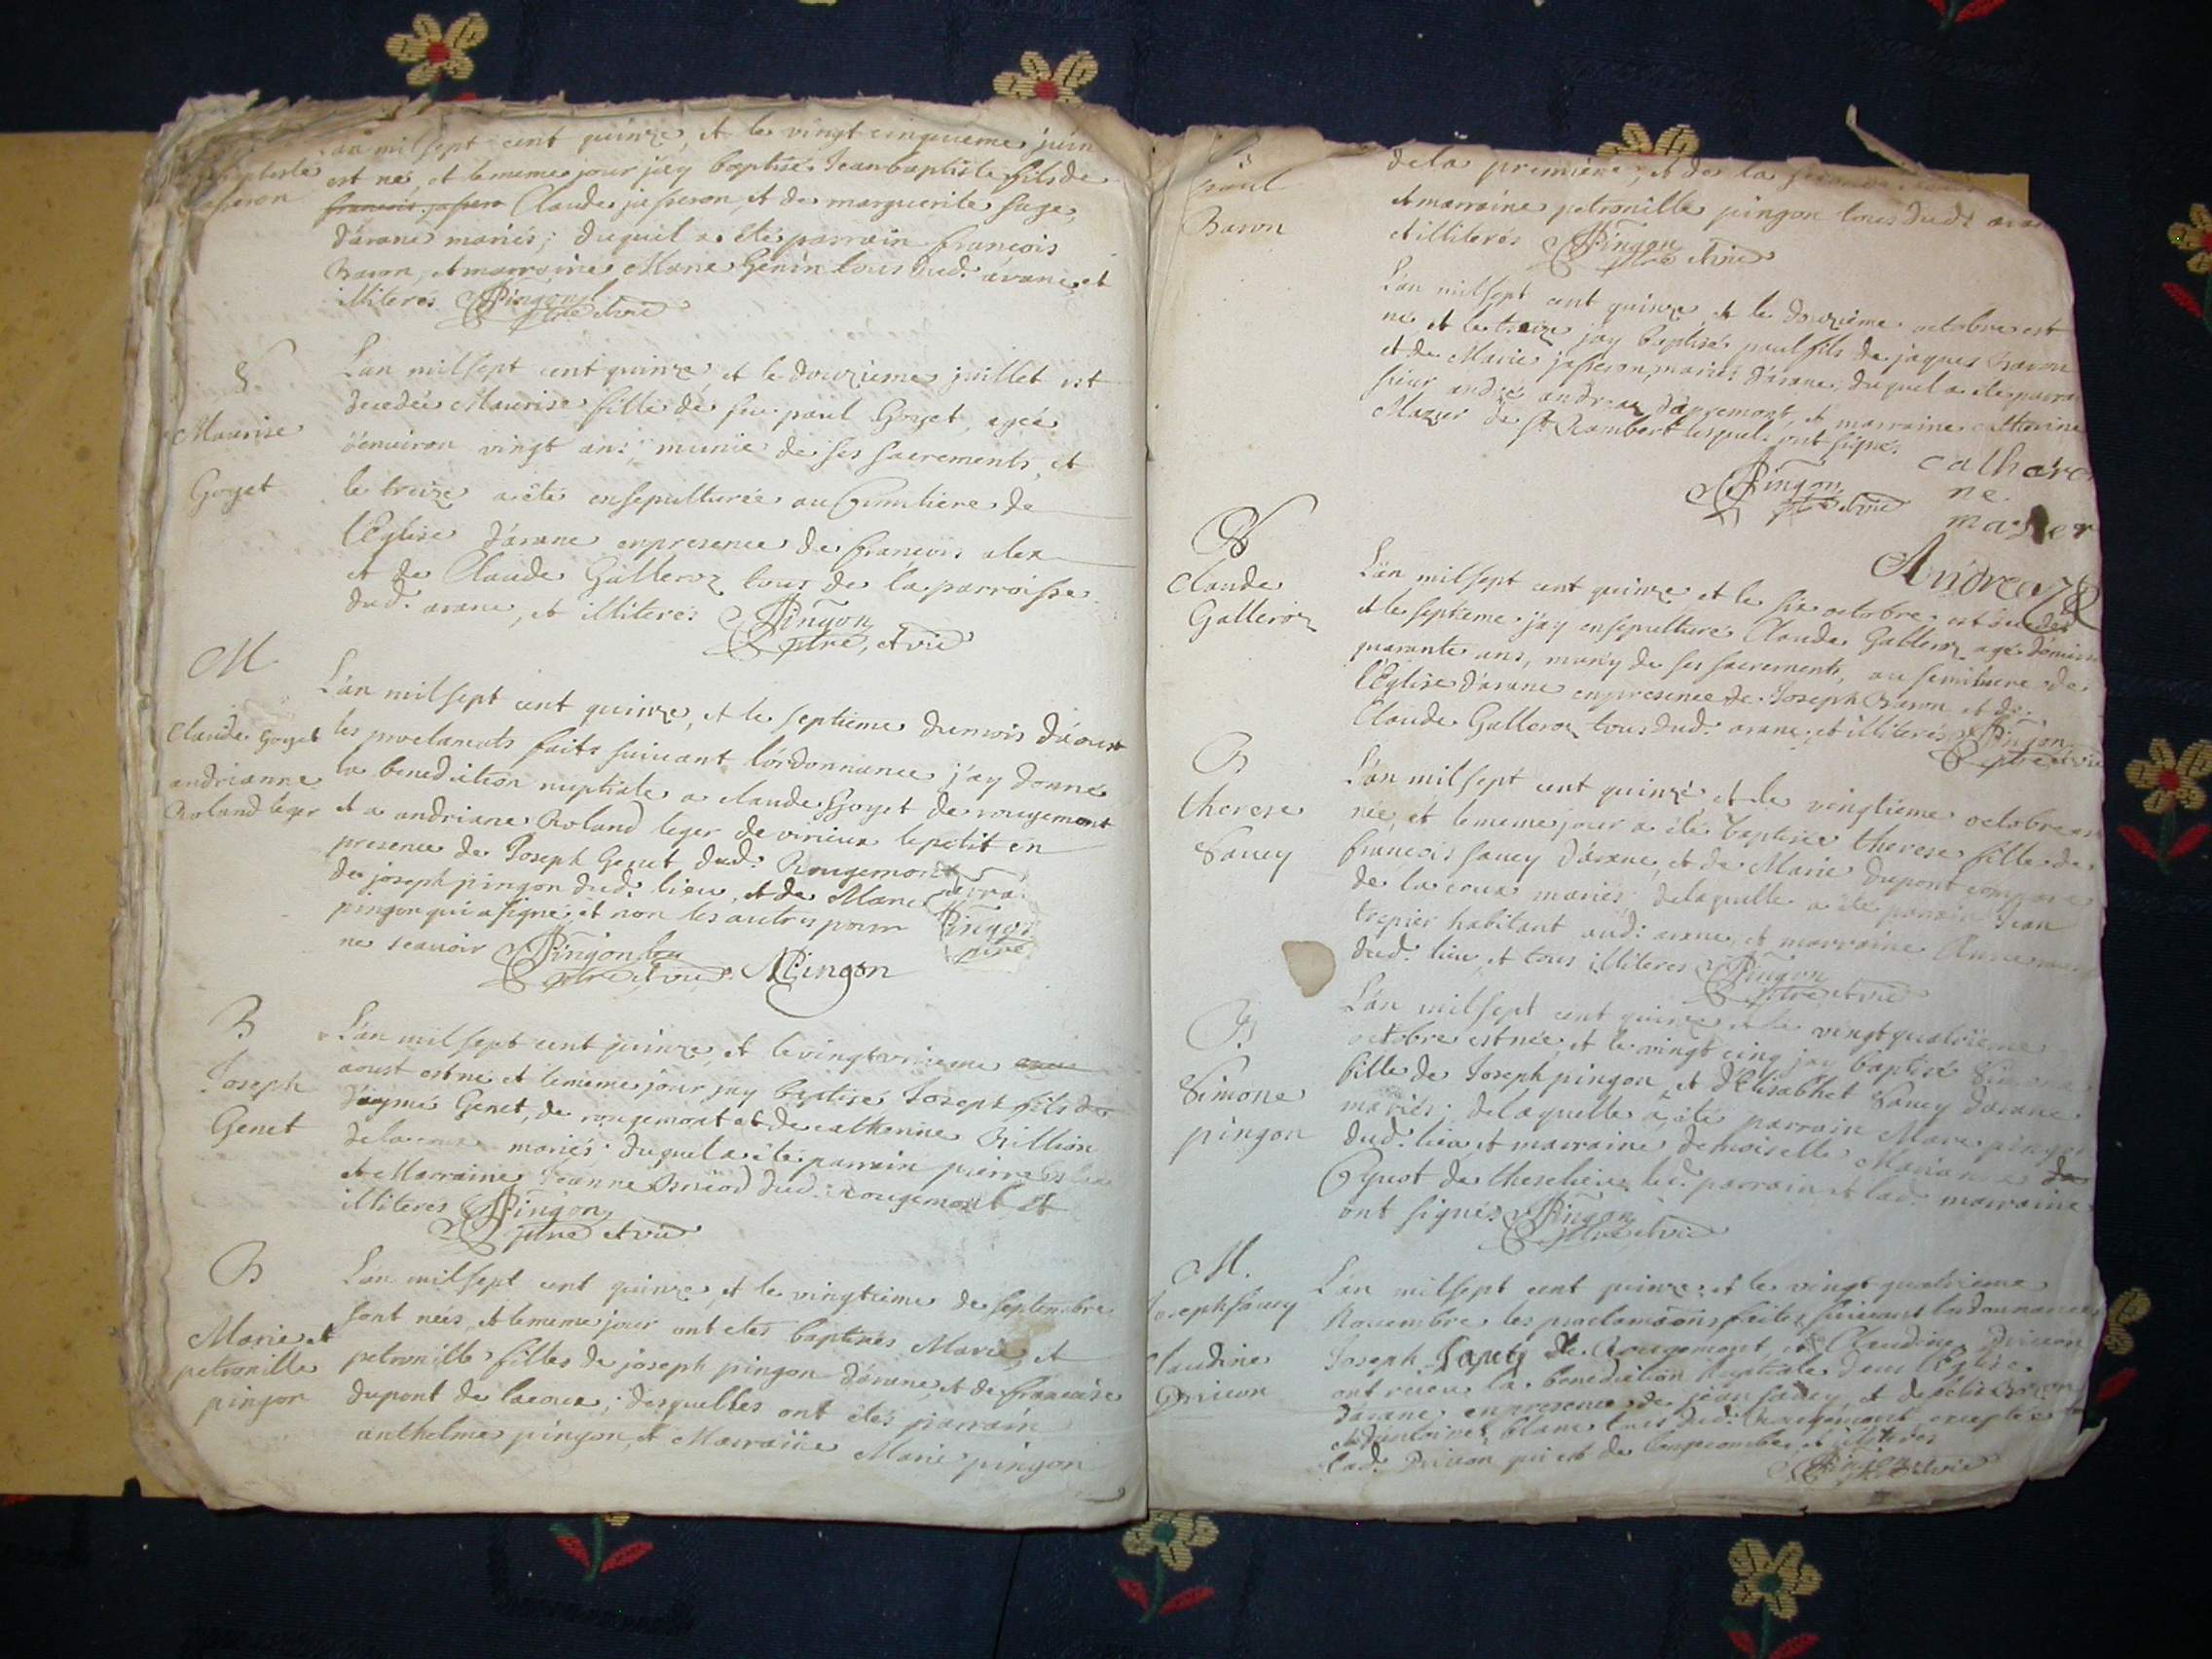 L'an mil sept cent quinze, et le vingt cinquieme juin
est né, et le meme jour j'ay baptisé Jean baptiste fils de
Claude jasseron, et de marguerite
d'arane mariés; duquel a été parrain françois
Baron, et marraine Marie Genin tous dud. arane, et
illiterés Pingon
ptre et vic
S
Maurise
Goyet
L'an mil sept cent quinze, et le douzieme juillet est
decedée Maurise fille de feu paul Goyet, agée
d'enuiron vingt ans, munie de ses sacrements, et
le treize a été ensepulturée au Cimitiere de
l'Eglise d'arane en presence de françois alex
et de Claude Galleroz tous de la parroisse
dud. arane, et illiterés Pingon
ptre, et vic
M
Claude Goyet
andrianne
Roland leger
L'an mil sept cent quinze, et le septieme du mois d'aoust
les proclamats faits suiuant l'ordonnance j'ay donné
la benediction nuptiale a claude Goyet de rougemont
et a andriane Roland leger de virieux le petit en
presence de Joseph Genet dud. Rougemont
de joseph pingon dud. lieu, et de Marc
pingon qui a signé, et non les autres pour
ne scauoir Pingon
ptre et vic MPingon
B
Joseph
Genet
L'an mil sept cent quinze, et le vingt
aoust est né et le meme jour jay baptisé Joseph fils de
Genet, de rougemont et de catherine Billion
de la coux mariés; duquel a été parrain pierre
et Marraine Jeanne dud. rougemont et
illiteres Pingon
ptre et vic
B
Marie et
petronille
pingon
L'an mil sept cent quinze, et le vingtieme de septembre
sont nées, et le meme jour ont étés baptisés Marie, et
petronille filles de joseph pingon d'arane, et de francoise
dupont de lacoux; desquelles ont étés parrain
anthelme pingon, et Marraine Marie pingon
B
paul
Baron
de la premiere, et de la seconde
et marraine petronille pingon tous dud.
et illiterés Pingon
ptre et vic
L'an mil sept cent quinze et le douzieme octobre est
né et le treize jay baptisé paul fils de jaques Baron
et de Marie jasseron mariés d'arane, duquel a été
sieur andré andreaz d'apremont, et marraine catherine
Mazuer de St Rambert lesquels ont signé.
Pingon
ptre et vic
cathere
ne
Andreaz
S
Claude
Galleroz
L'an mil sept cent quinze et le six octobre est
et le septieme jay ensepulturé Claude Galleroz agé
quarante ans, muny de ses sacrements, au semitiere de
l'Eglise d'arane en presence de Joseph Baron et de
Claude Galleroz tous dud. arane et illiterés Pingon
ptre et vic
B
therese
Sauey
L'an mil sept cent quinze et le vingtieme octobre
née, et le meme jour a été baptisée therese fille de
francois sauey d'arane, et de Marie dupont
de la coux mariés; delaquelle a été parrain Jean
trepier habitant aud. arane et marraine
dud. lieu, et tous illiteres Pingon
ptre et vic
B
Simone
pingon
L'an mil sept cent quinze et le vingt quatrieme
octobre est née, et le vingt cinq jay baptisé Simone
fille de Joseph pingon, et d'Elisabhet Sauey d'arane
mariés; delaquelle a été parrain Marc pingon
dud. lieu, et marraine demoiselle
led. parrain et lad. marraine
ont signés Pingon
ptre et vic
M.
Joseph Sauey
Claudine
L'an mil sept cent quinze et le vingt quatrieme
Nouembre les proclamaõns faites suiuant l'ordonnance
Joseph Sauey de Rougemont, et Claudine
ont receu la benediction Nuptiale dans l'Eglise
d'arane en presence de jean sauey, et de
blanc tous dud. Rougemont excepté
lad. qui est de et illiteres
Pingon
ptre et vic